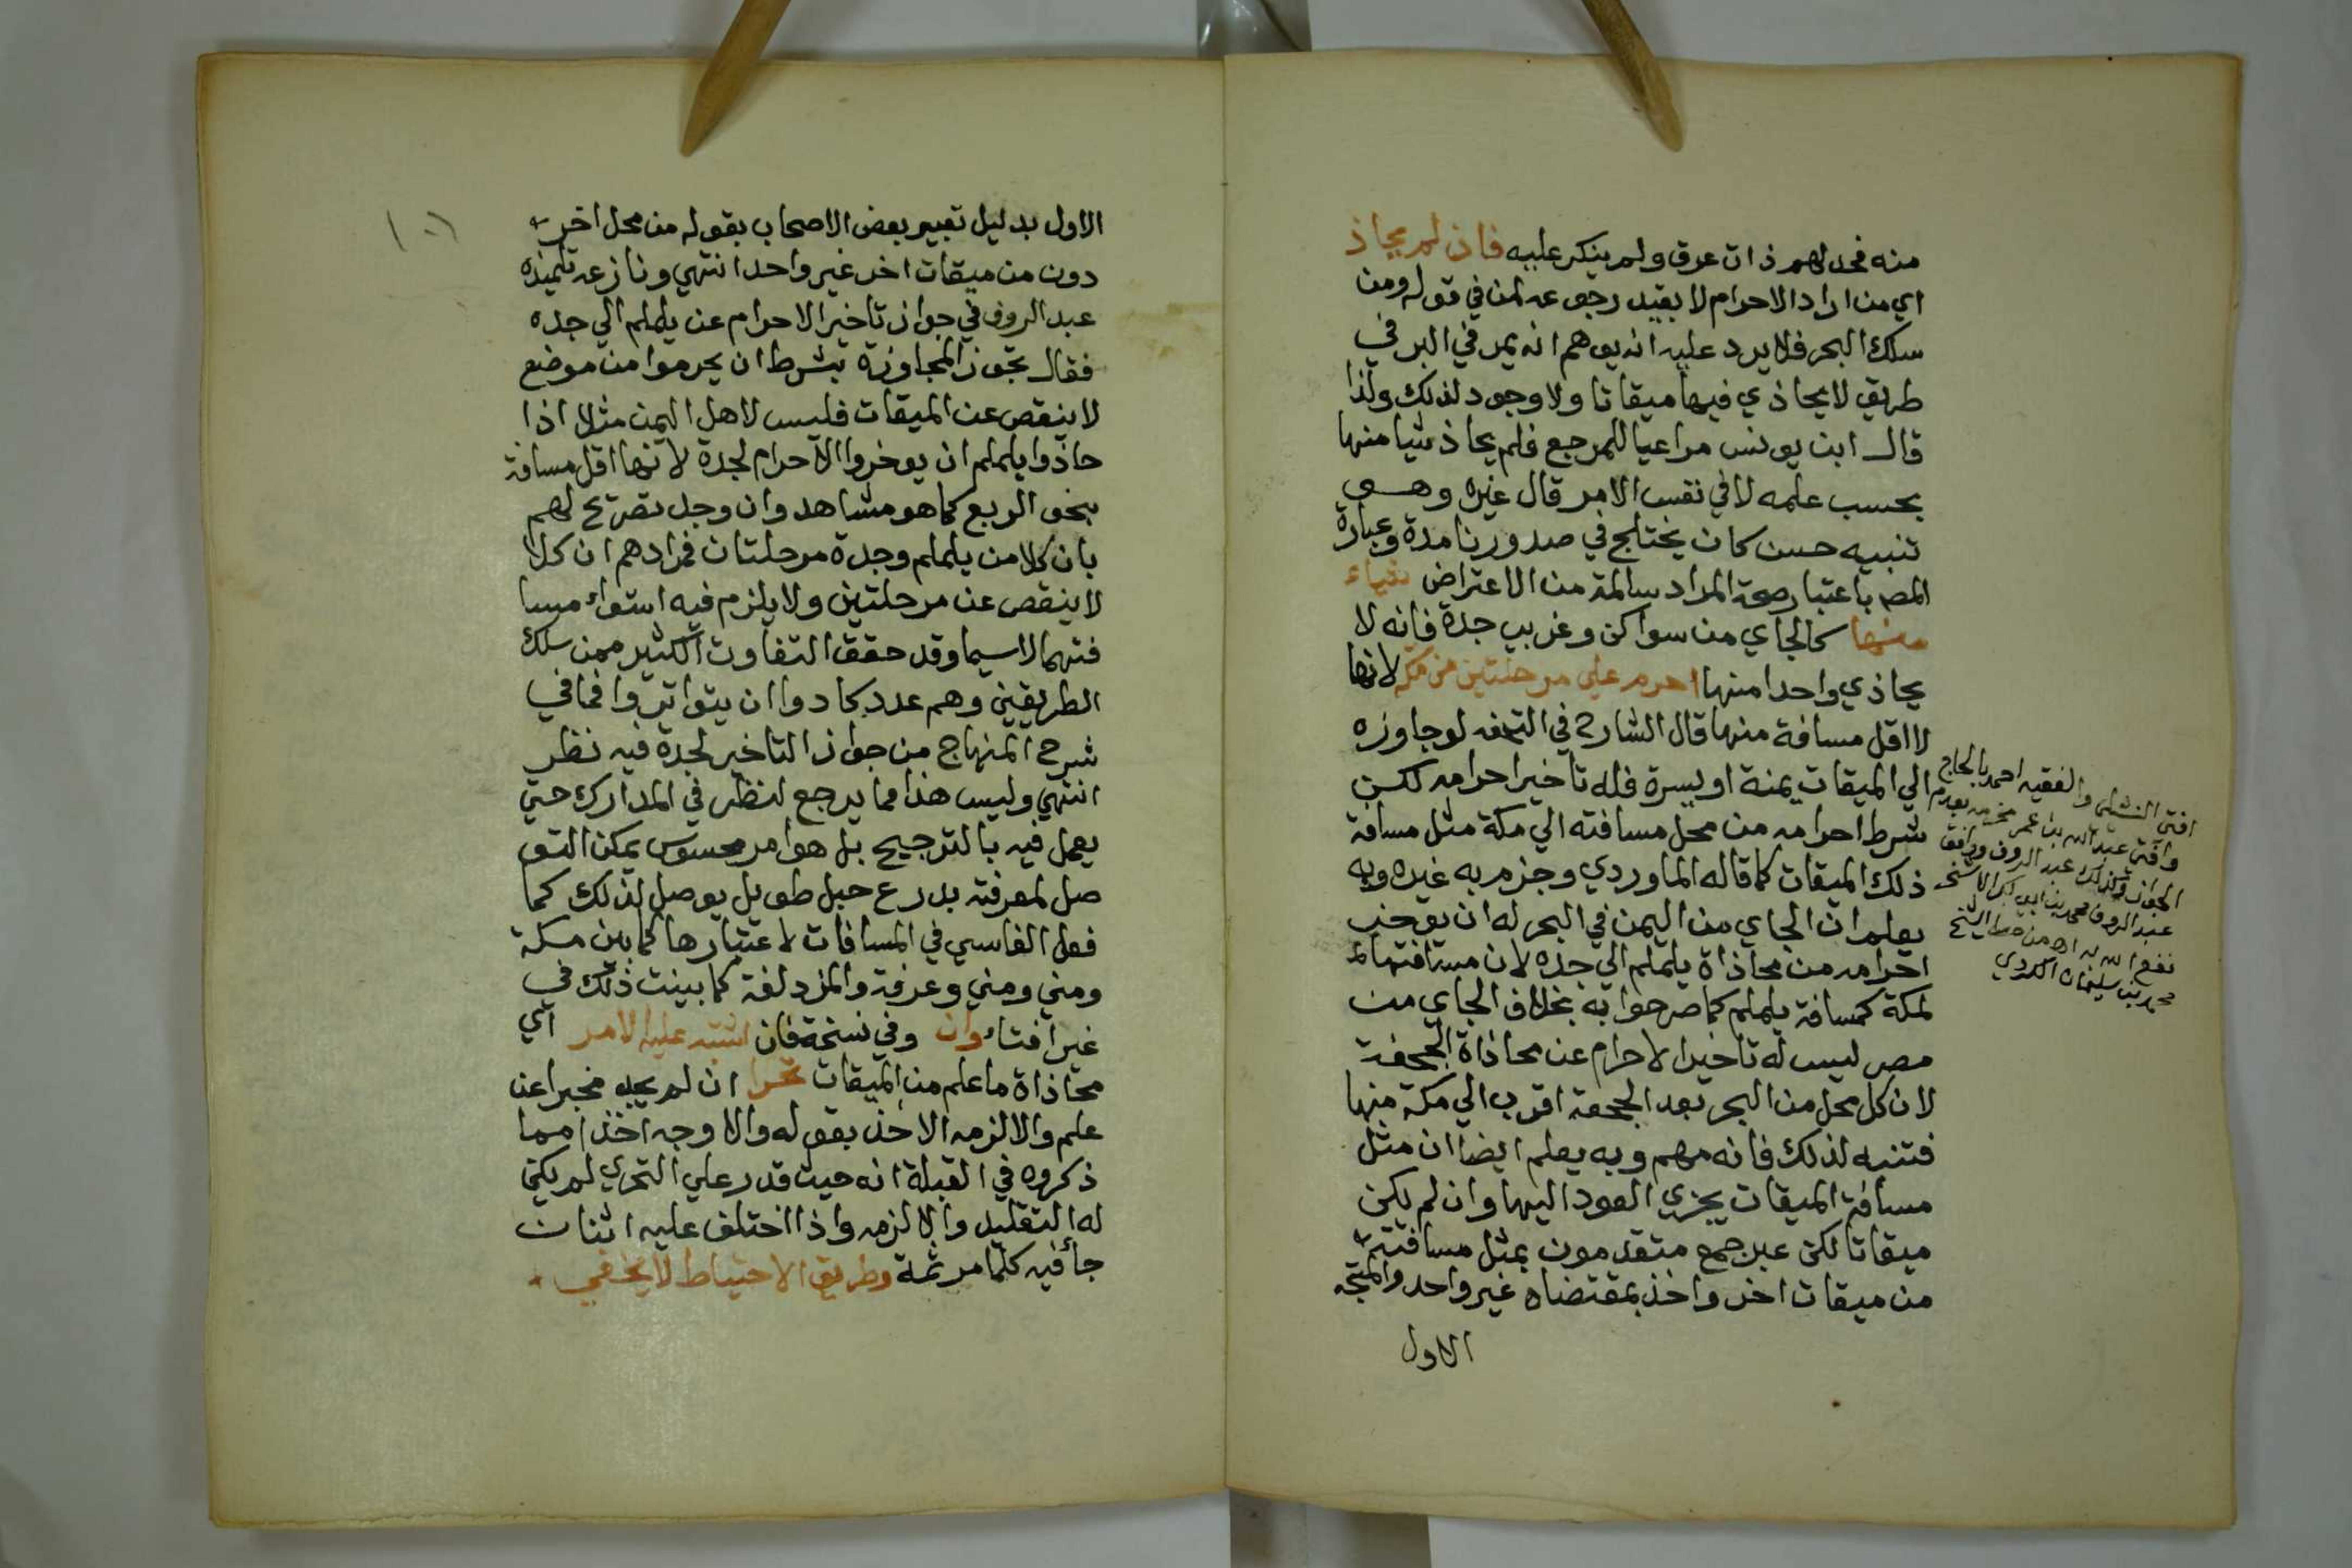 منه فحد لهم ذات عرق ولم ينكر عليه فان لم يحاذ
اي من اراد الاحرام لا بقيد رجوعه لمن في قوله ومن
سلك البحر فلا يرد عليه انه يوهم انه يمر في البر في
طريق لا يحاذي فيها ميقاتا ولا وجود لذلك ولذا
قال ابن يونس مراعيا للمرجع فلم يحاذ شيا منها
بحسب علمه لا في نفس الامر قال غيره وهو
تنبيه حسن كان يختلج في صدورنا مدة وعبارة
المصم باعتبار صحة المراد سالمة من الاعتراض شياء
منها كالجاي من سواكن وغربي جدة فانه لا
يحاذي واحدا منها احرم علي مرحلتين من مكه لانها
لا اقل مسافة منها قال الشارح في التحفه لو جاوزه
الي الميقات يمنة او يسرة فله تاخير احرامه لكن
شرط احرامه من محل مسافته الي مكة مثل مسافة
ذلك الميقات كما قاله الماوردي وجزم به غيره وبه
يعلم ان الجاي من اليمن في البحر له ان يوخر
احرامه من محاذاة يلملم الي جده لان مسافتها
لمكة كمسافة يلملم كما صرحوا به بخلاف الجاي من
مصر ليس له تاخير الاحرام عن محاذاة الجحفة
لان كل محل من البحر بعد الجحفة اقرب الي مكة منها
فتنبه لذلك فانه مهم وبه يعلم ايضا ان مثل
مسافة الميقات يجزي العود اليها وان لم يكن
ميقاتا لكن عبر جمع متقدمون بمثل مسافته
من ميقات اخر واخذ بمقتضاه غير واحد والمتجه
الاول
افتى النشيلي والفقيه احمد بالحاج
وافتى عبد الله بن عمر مخرمه بعدم
الجواز وكذلك عبد الروف ووافق
عبد الروف محمد بن ابي بكر الاشخر
نفع الله به اه من خط الشيخ
محمد بن سليمان الكردي
١٠٦
الاول بدليل تعبير بعض الاصحاب بقوله من محل اخر
دون من ميقات اخر غير واحد انتهي ونازعه تلميذه
عبد الروف في جواز تاخير الاحرام عن يلملم الي جده
فقال تجوز المجاوزة بشرط ان يحرموا من موضع
لا ينقص عن الميقات فليس لاهل اليمن مثلا اذا
حاذوا يلملم ان يوخروا الاحرام لجدة لانها اقل مسافة
بنحو الربع كما هو مشاهد وان وجد تصريح لهم
بان كلا من يلملم وجدة مرحلتان فمرادهم ان كلا
لا ينقص عن مرحلتين ولا يلزم فيه استواء مسا
فتهما لا سيما وقد حقق التفاوت الكثير ممن سلك
الطريقين وهم عدد كادوا ان يتواتروا فما في
شرح المنهاج من جواز التاخير لجدة فيه نظر
انتهي وليس هذا مما يرجع لنظر في المدارك حتي
يعمل فيه بالترجيح بل هو امر محسوس يمكن التو
صل لمعرفته بذرع حبل طويل يوصل لذلك كما
فعل الفاسي في المسافات لاعتبارها كما بين مكة
ومني ومني وعرفة والمزدلفة كما بينت ذلك في
غير افتاء وان وفي نسخة فان اشتبه عليه الامر اي
محاذاة ما علم من الميقات تحرا ان لم يجد مخبرا عن
علم والا لزمه الاخذ بقوله والاوجه اخذا مما
ذكروه في القبلة انه حيث قدر علي التحري لم يكن
له التقليد والا لزمه واذا اختلف عليه اثنان
جا فيه كلما مر ثمة وطريق الاحتياط لا يخفي